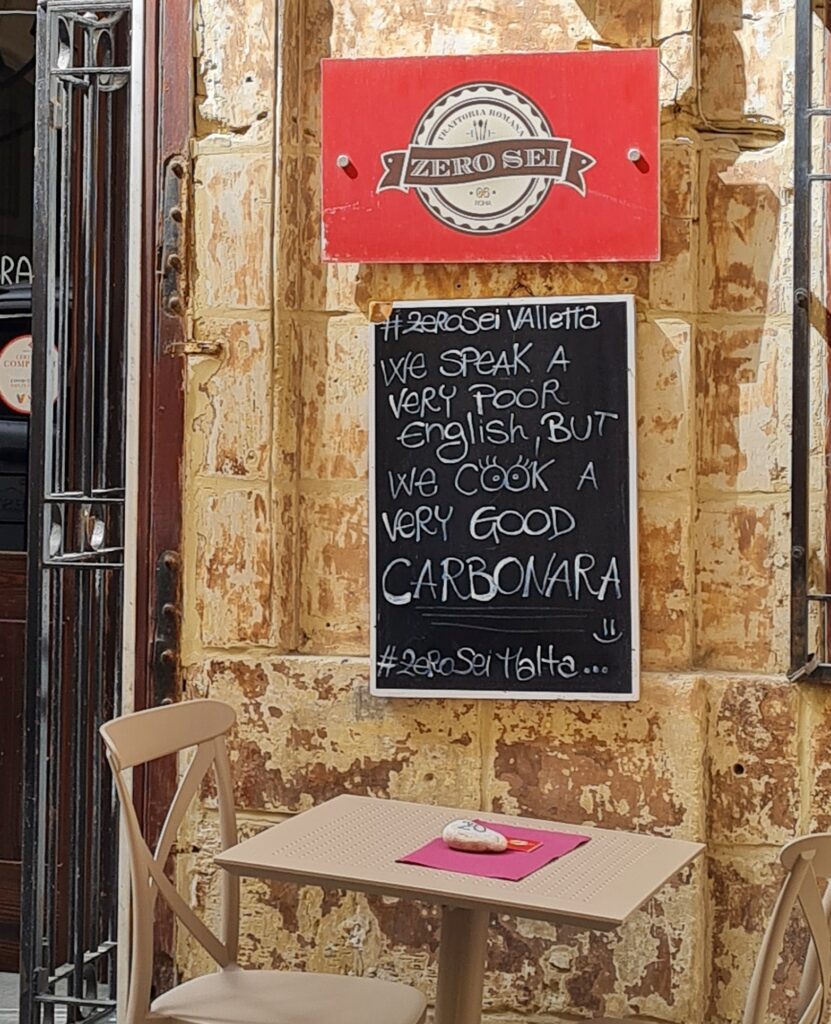 TRATTORIA ROMANA
ZERO SEI
06
ROMA
#ZeroSei VAlletta
We SPEAK A
VeRy POOR
English, BUT
We COOK A
VeRy GOOD
CARBONARA
#ZeroSei Malta...
RA